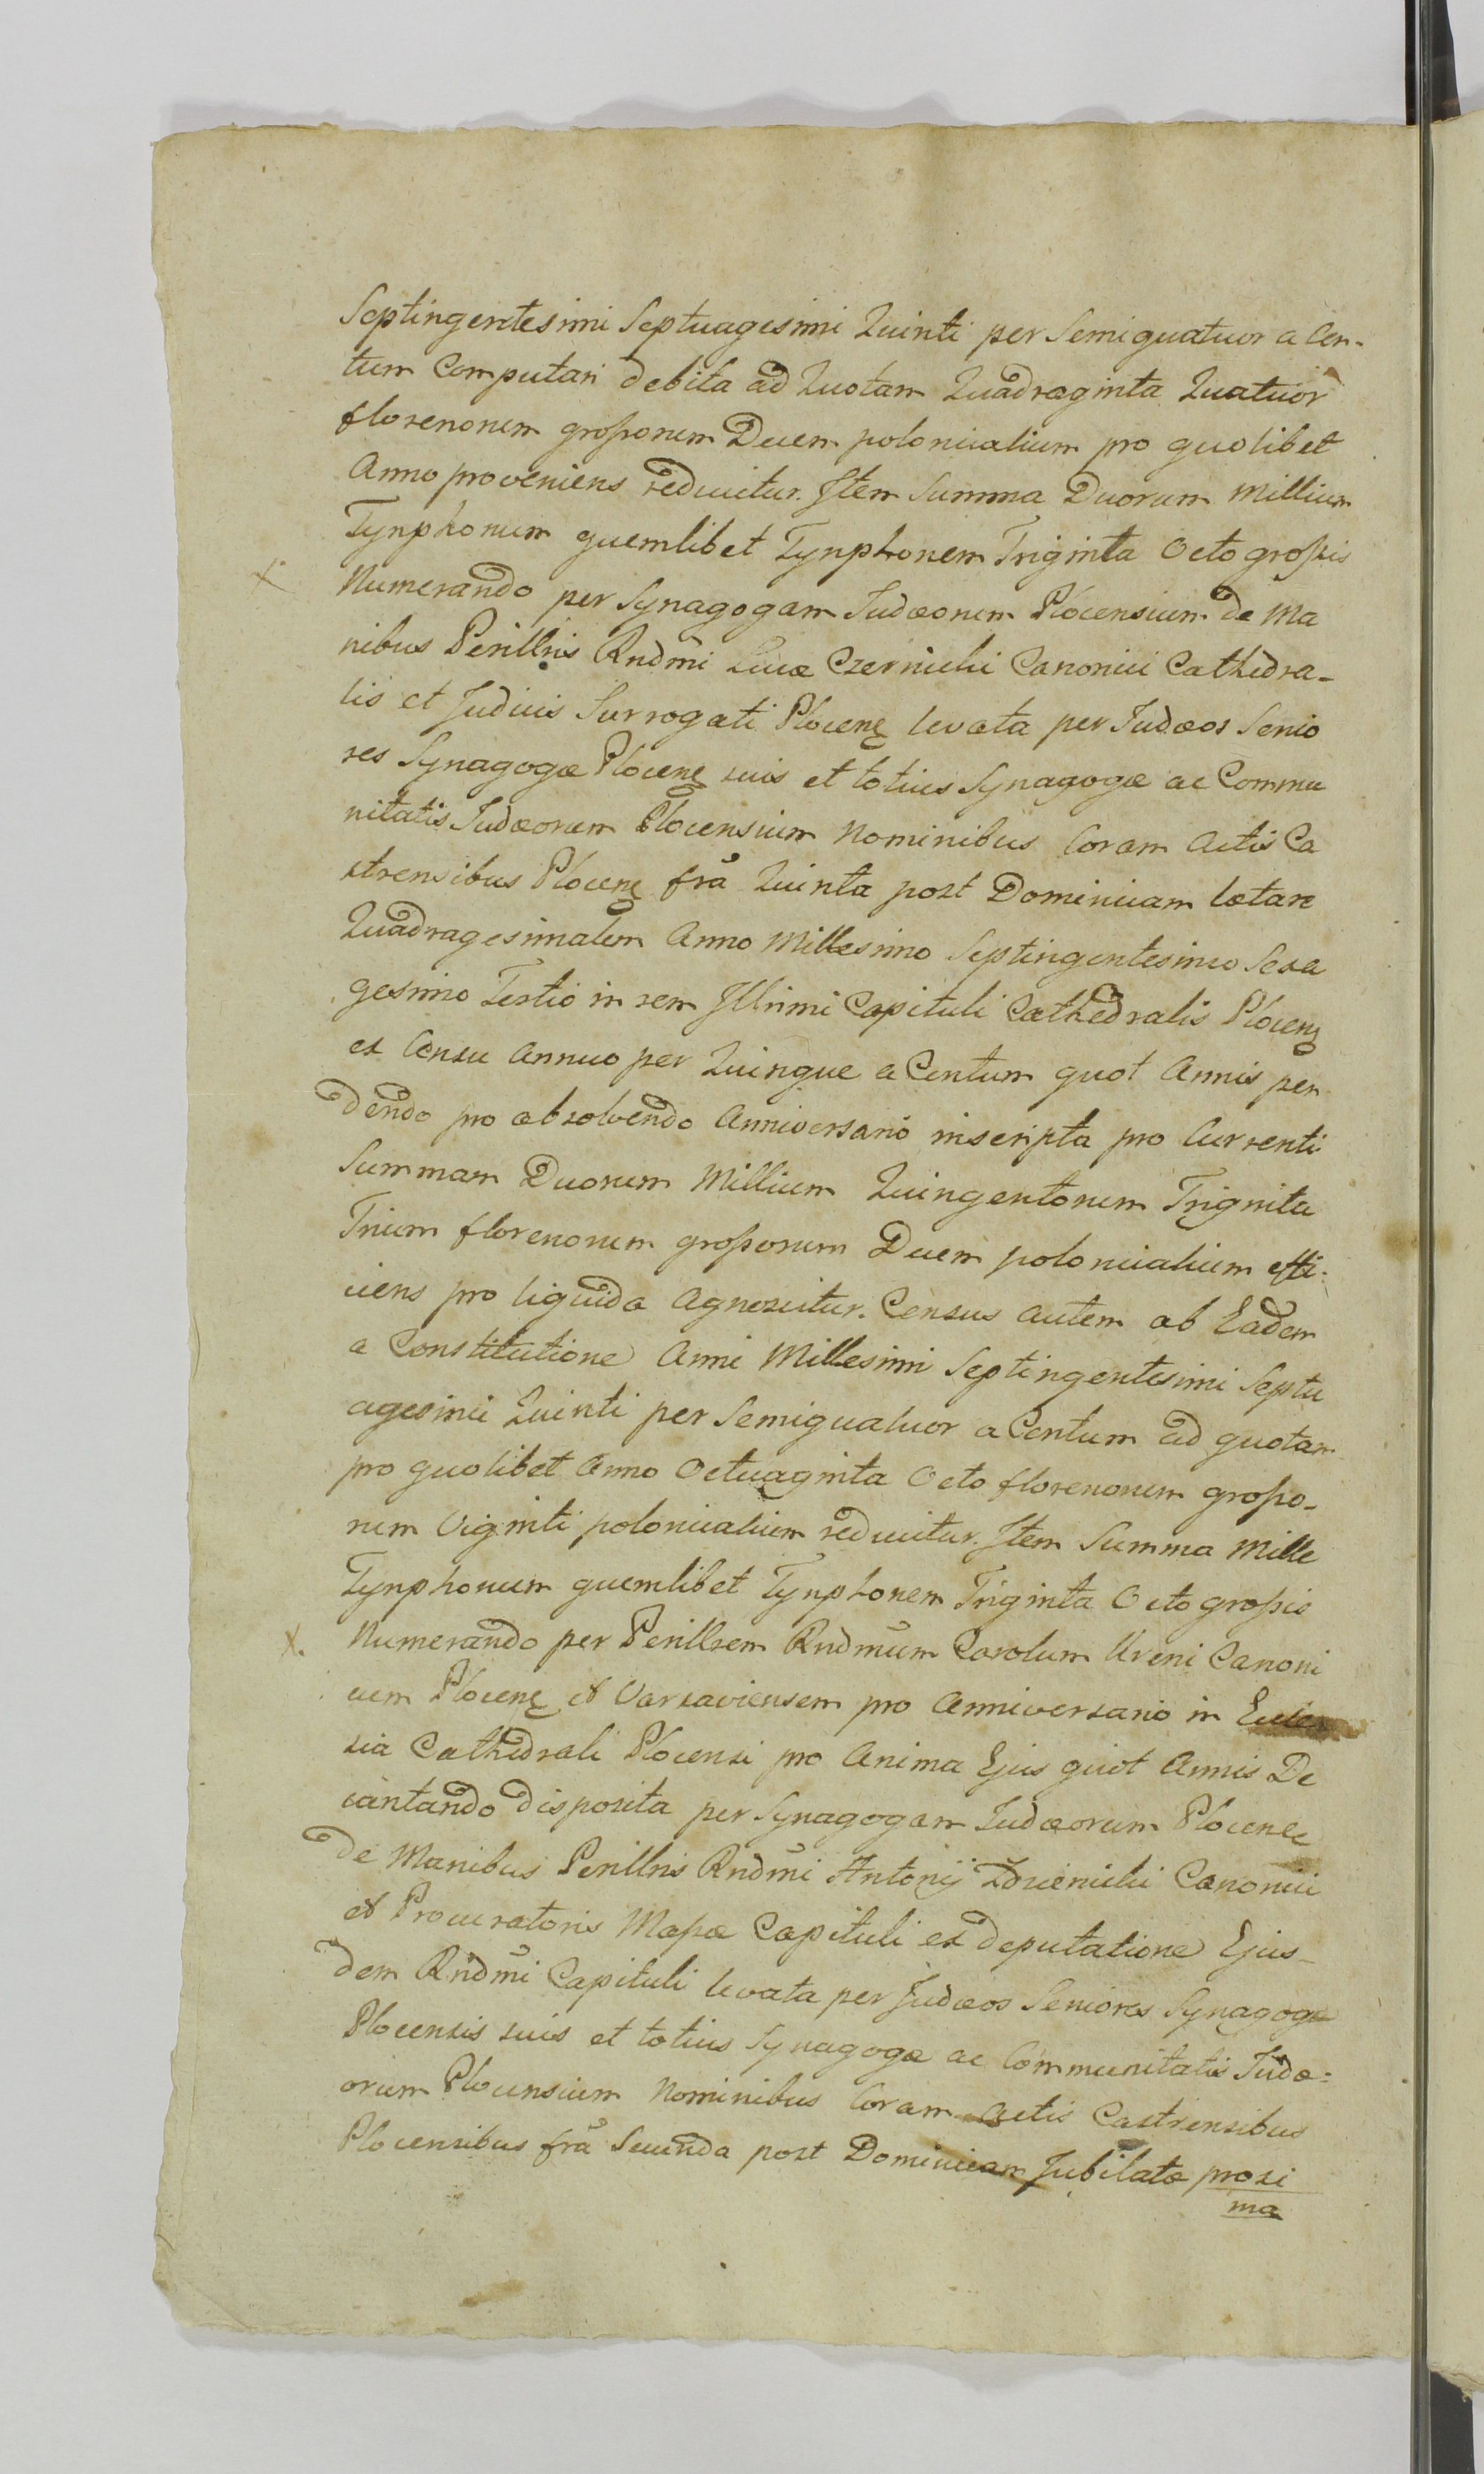 Septingentesimi Septuagesimi Quinti per Semiquatuor a Cen-
tum Computari debita ad Quotam Quadraginta Quatuor
florenorum grossorum Decem polonicalium pro quolibet
Anno proveniens reducitur. Item Summa Duorum Millium
Tynphonum quemlibet Tynphonem Triginta Octo grossis
x Numerando per Synagogam Judæorum Plocensium de Ma
nibus Perillris Rndmi Lucæ Czernicki Canonici Cathedra-
lis et Judicis Surrogati Plocenę levata per Judæos Senio
res Synagogæ Plocenę suis et totius Synagogæ ac Commu
nitatis Judæorum Plocensium Nominibus Coram Actis Ca
strensibus Plocenę fra Quinta post Dominicam lætare
Quadragesimalem Anno Millesimo Septingentesimo Sexa
gesimo Tertio in rem Illrimi Capituli Cathedralis Plocenę
ex Censu Annuo per Quinque a Centum quot Annis pen
dendo pro absolvendo Anniversario inscripta pro Currenti
Summam Duorum Millium Quingentorum Triginta
Trium florenorum grossorum Decem polonicalium effi-
ciens pro liquida Agnoscitur. Census autem ab Eadem
a Constitutione Anni Millesimi Septingentesimi Septu
agesimi Quinti per Semiquatuor a Centum ad quotam
pro quolibet Anno Octuaginta Octo florenorum grosso-
rum Viginti polonicalium reducitur. Item Summa Mille
Tynphonum quemlibet Tynphonem Triginta Octo grossis
x. Numerando per Perillrem Rndmum Carolum Ureni Canoni
cum Plocenę et Varsaviensem pro Anniversario in Eccle
sia Cathedrali Plocensi pro Anima Ejus quot Annis De
cantando disposita per Synagogam Judæorum Plocenę
de Manibus Perillris Rndmi Antonij Canonici
et Procuratoris Massæ Capituli ex deputatione Ejus-
dem Rndmi Capituli levata per Judæos Seniores Synagogæ
Plocensis suis et totius Synagogæ ac Communitatis Judæ=
orum Plocensium Nominibus Coram Actis Castrensibus
Plocensibus fra Secunda post Dominicam Jubilate proxi
ma